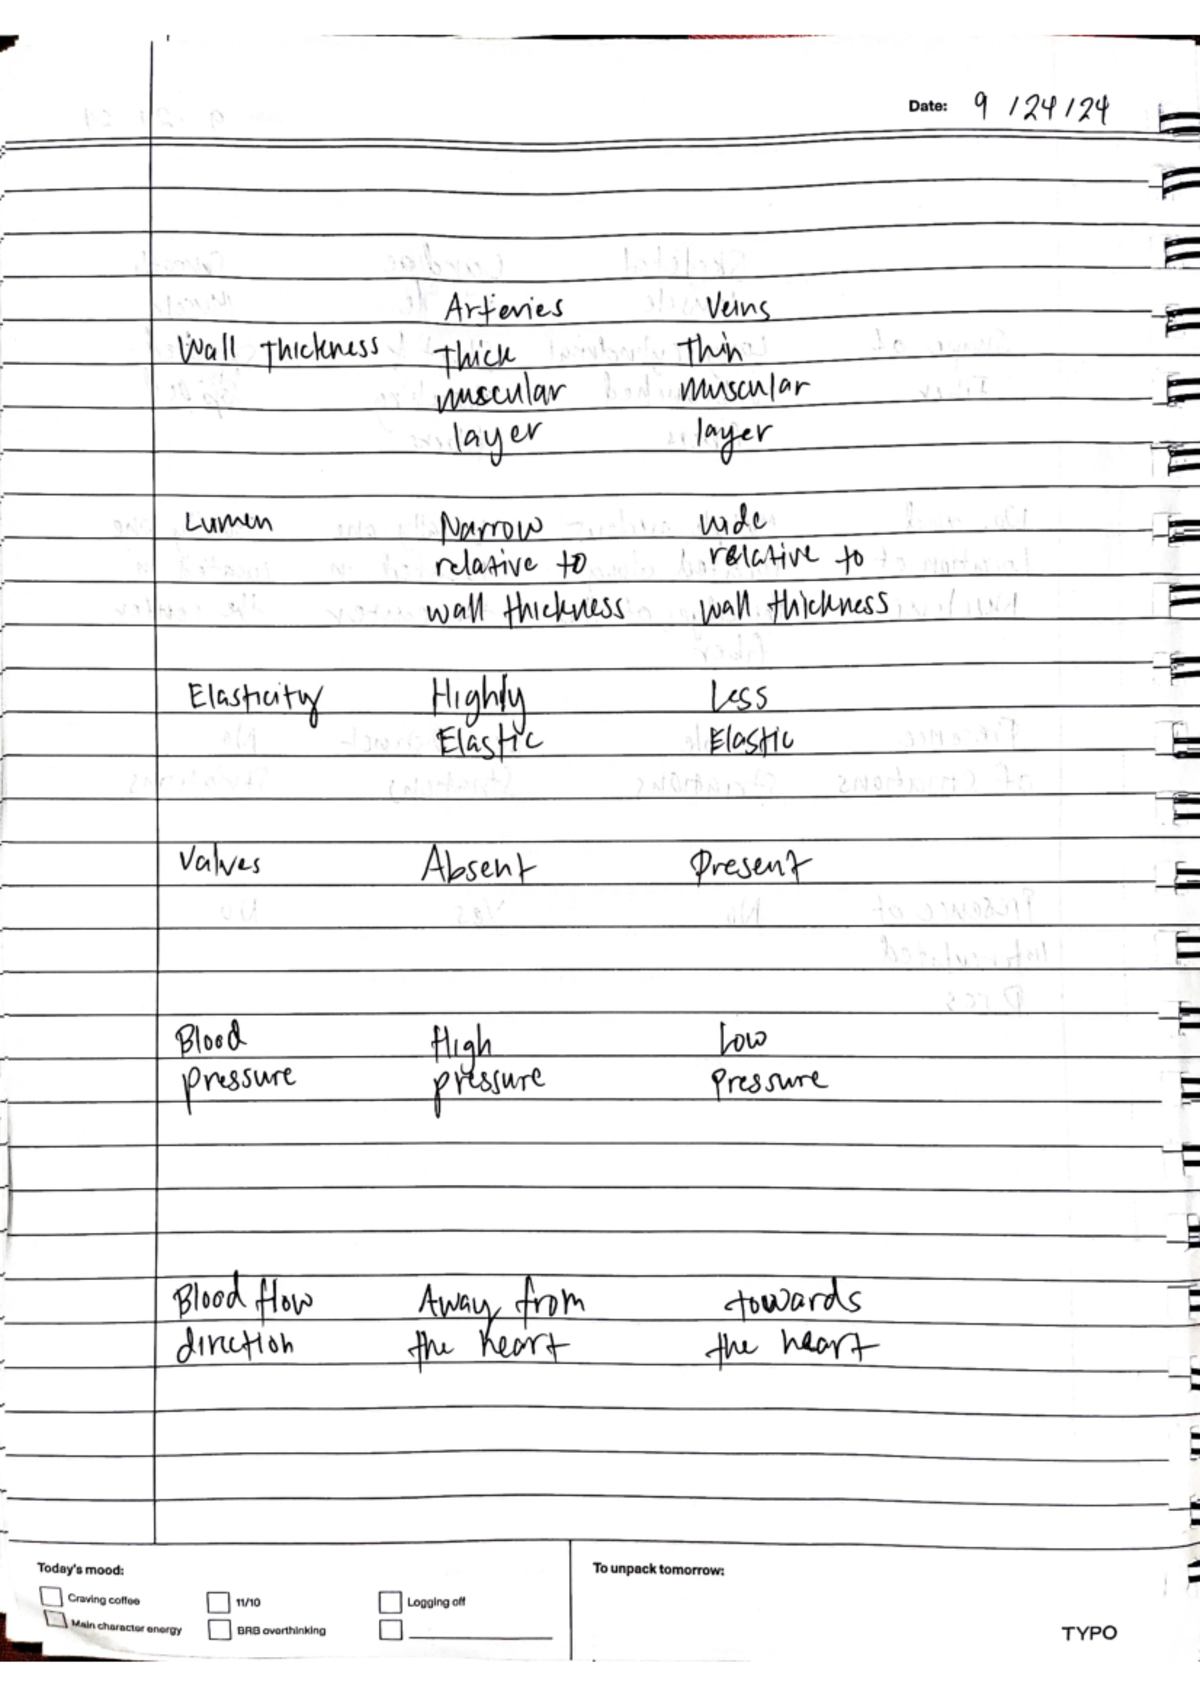 Date: 9 / 24 / 24
Arteries Veins
Wall Thickness Thick Thin
muscular muscular
layer layer
Lumen Narrow wide
relative to relative to
wall thickness wall thickness
Elasticity Highly Less
Elastic Elastic
Valves Absent Present
Blood High Low
pressure pressure Pressure
Blood flow Away from towards
direction the heart the heart
Today's mood: To unpack tomorrow:
Craving coffee 11/10 Logging off
Main character energy BRB overthinking
TYPO